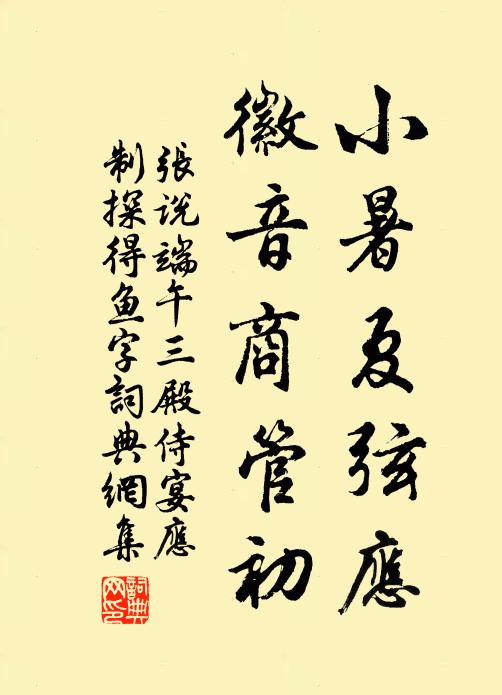 小暑夏弦應
徽音商管初
張說端午三殿侍宴應
制探得魚字詞典網集
詞典
网印